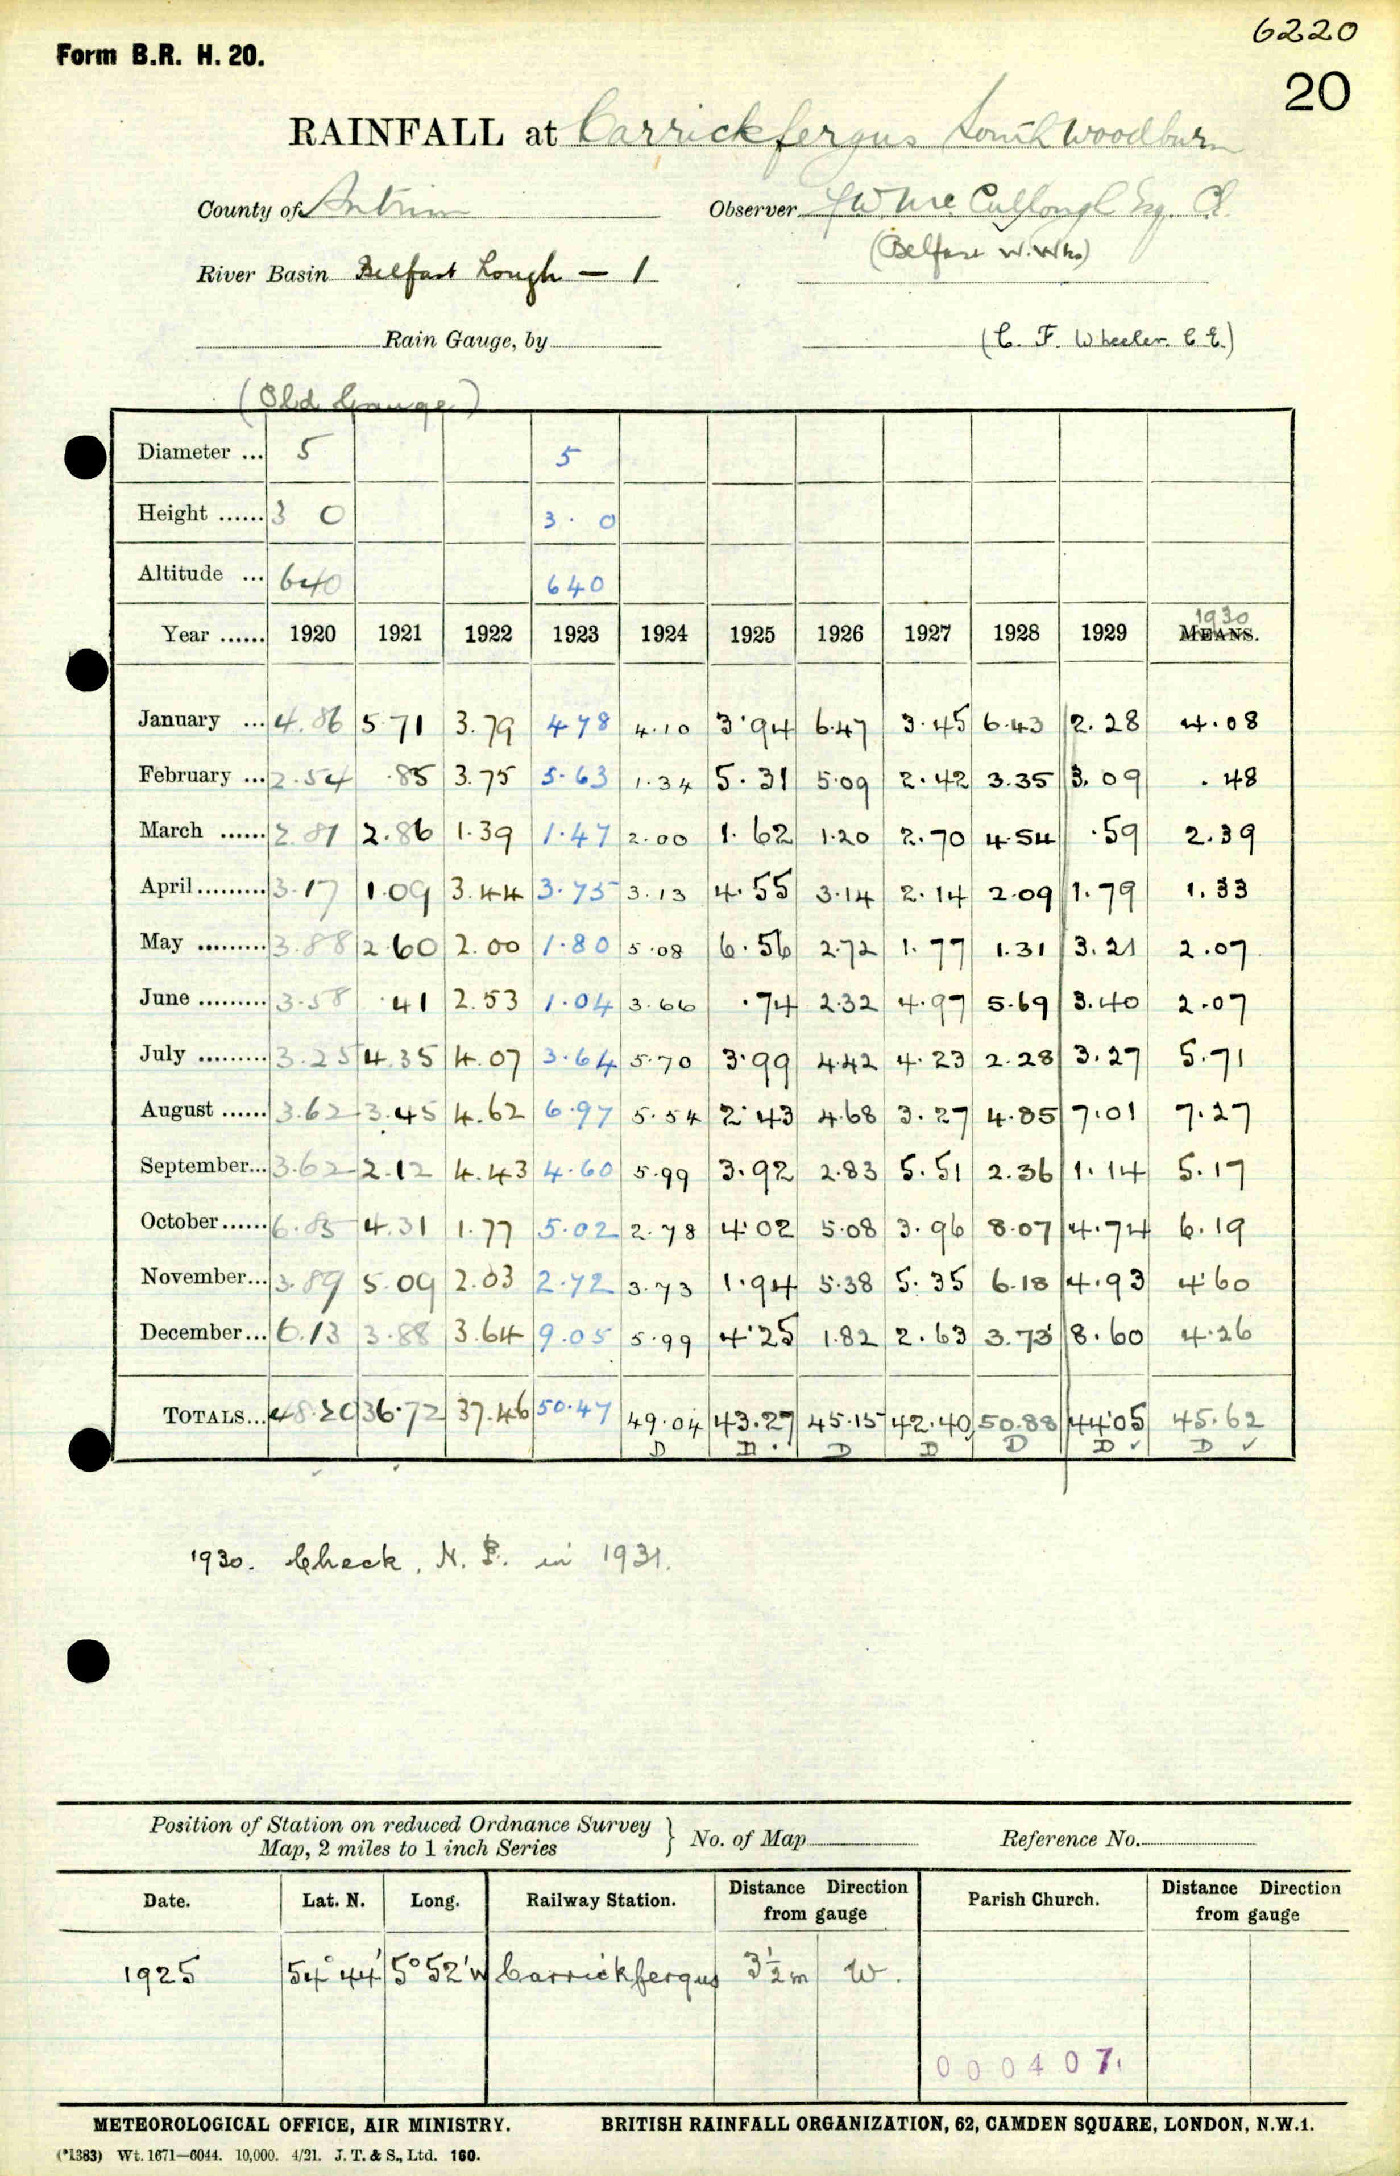 6220
Form B.R. H. 20.
20
RAINFALL at Carrickfergus South Woodburn
County of Antrim Observer F W McCullough Esq. CE.
(Belfast W. Wks)
River Basin Belfast Lough — 1
Rain Gauge, by (C. F. Wheeler C E.)
(Old Gauge)
Diameter ... 5 5
Height ...... 3 0 3 · 0
Altitude ... 640 640
1930
Year ...... 1920 1921 1922 1923 1924 1925 1926 1927 1928 1929 MEANS.
January ... 4.86 5 71 3.79 4 78 4.10 3.94 6.47 3.45 6.43 2.28 4.08
February ... 2.54 .85 3.75 5.63 1.34 5.31 5.09 2.42 3.35 3.09 .48
March ...... 2.81 2.86 1.39 1.47 2.00 1.62 1.20 2.70 4.54 .59 2.39
April ......... 3.17 1.09 3.44 3.75 3.13 4.55 3.14 2.14 2.09 1.79 1.33
May ......... 3.88 2 60 2.00 1.80 5.08 6.56 2.72 1.77 1.31 3.21 2.07
June ......... 3.58 .41 2.53 1.04 3.66 .74 2.32 4.97 5.69 3.40 2.07
July ......... 3.25 4.35 4.07 3.64 5.70 3.99 4.42 4.23 2.28 3.27 5.71
August ...... 3.62 3.45 4.62 6.97 5.54 2.43 4.68 3.27 4.85 7.01 7.27
September... 3.62 2.12 4.43 4.60 5.99 3.92 2.83 5.51 2.36 1.14 5.17
October...... 6.85 4.31 1.77 5.02 2.78 4.02 5.08 3.96 8.07 4.74 6.19
November... 3.89 5.09 2.03 2.72 3.73 1.94 5.38 5.35 6.18 4.93 4.60
December... 6.13 3.88 3.64 9.05 5.99 4.25 1.82 2.63 3.73 8.60 4.26
TOTALS... 48.20 36.72 37.46 50.47 49.04 43.27 45.15 42.40 50.88 44.05 45.62
D D D D D D ✓ D ✓
1930. Check, N. P. in 1931.
Position of Station on reduced Ordnance Survey
Map, 2 miles to 1 inch Series } No. of Map Reference No.
Date. Lat. N. Long. Railway Station. Distance Direction from gauge Parish Church. Distance Direction from gauge
1925 54° 44' 5° 52' W Carrickfergus 3½ m W.
000407
METEOROLOGICAL OFFICE, AIR MINISTRY. BRITISH RAINFALL ORGANIZATION, 62, CAMDEN SQUARE, LONDON, N.W.1.
(*1383) Wt. 1671—6044. 10,000. 4/21. J. T. & S., Ltd. 160.